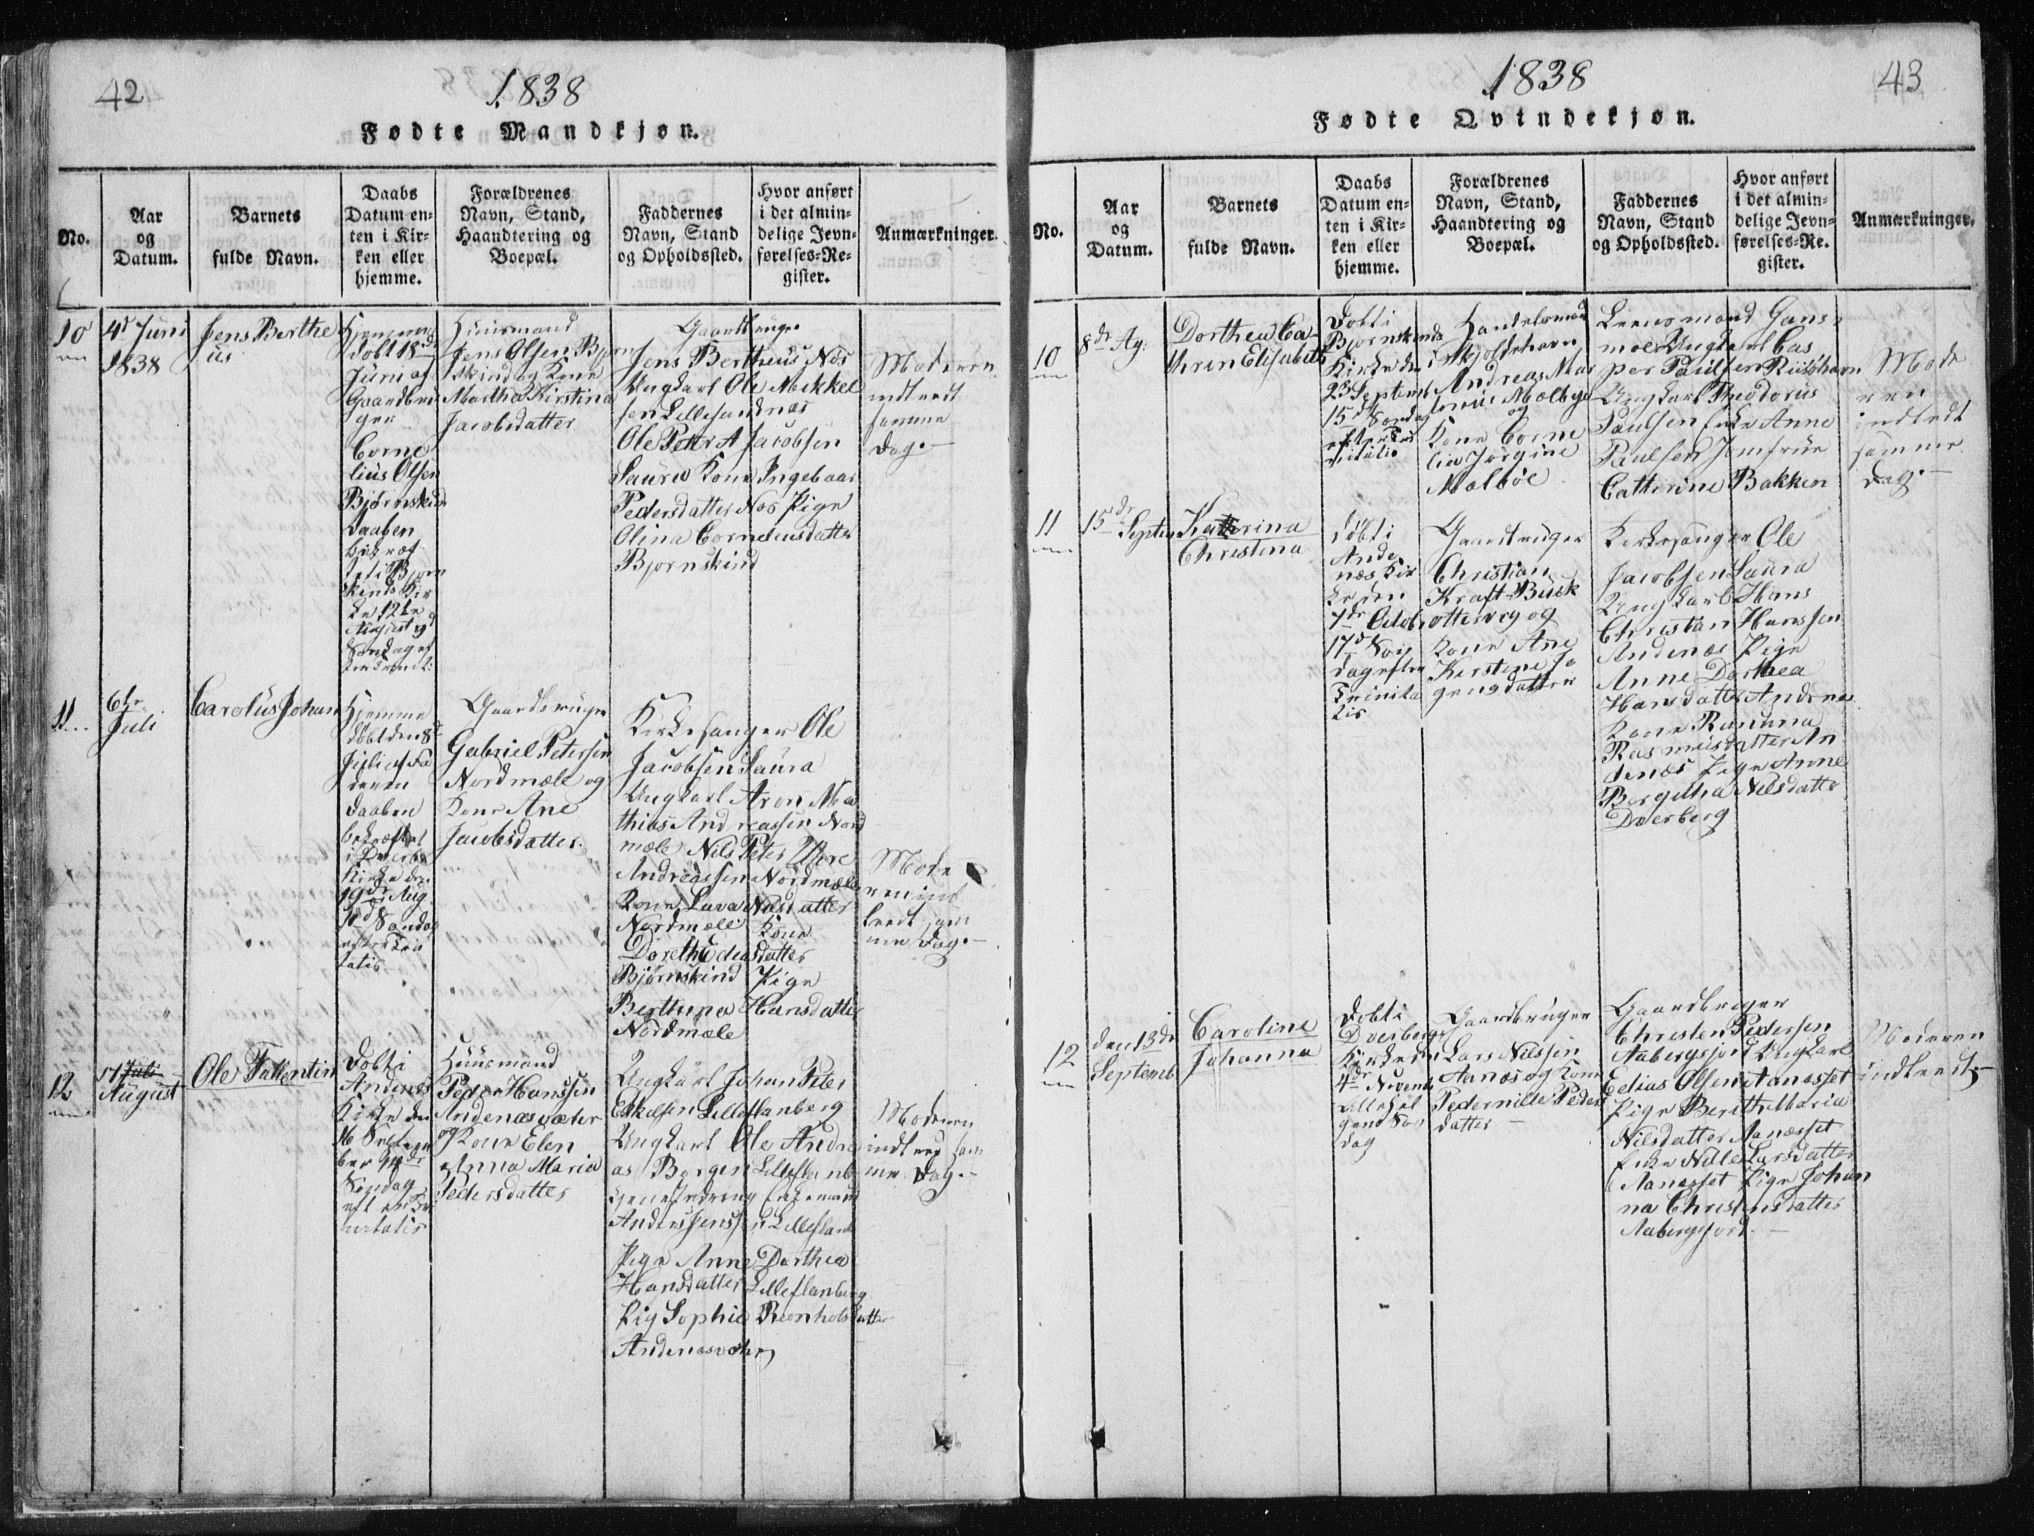 42
1838
Fødte Mandkjøn.
No.
Aar
og
Datum.
Barnets
fulde Navn.
Daabs
Datum en-
ten i Kir-
ken eller
hjemme.
Forældrenes
Navn, Stand,
Haandtering og
Boepæl.
Faddernes
Navn, Stand
og Opholdssted.
Hvor anført
i det almin-
delige Jevn-
førelses-Re-
gister.
Anmærkninger.
10
4d Juni
1838
Jens Berthe
us
Hjemme
døbt 18d
Juni af
Gaardbru
ger
Corne
lius Olsen
Bjørnskind
Daaben
Bjørn
skind Kir
ke 12te
August 9d
Søndag ef
Huusmand
Jens Olsen Bjørn
skind og Kone
Martha Kirstina
Jacobsdatter
Gaardbruger
Jens Bertheus Nos
Ungkarl Ole Mikkel
sen
Ole Peter A Jacobsen
Saura Kone Ingebaar
Pedersdatter Nos Pige
Olina Corneliusdatter
Bjørnskind
Moderen
indledt
samme
Dag.-
11
6te
Juli
Carolus Johan
Hjemme
døbt den 8d
Juli af Fa
deren
Daaben
bekræftet
i Dverbe
Kirke den
19de Aug
10d Søndag
efter Tri
tatis
Gaardbruger
Gabriel Petersen
Nordmæle og
Kone Ane
Jacobsdatter.
Kirkesanger Ole
Jacobsen Saura
Ungkarl Aron Ma
thias Andreassen Nord
mæle Nils Peter
Andreassen Nordmæle
Kone Lava Nilsdatter
Nordmæle Kone
Doreth Ediasdatter
Bjørnskind Pige
Berthina Hansdatter
Nordmæle
Mode
ren ind
ledt sam
me Dag.-
12
Juli
August
Ole Fallentin
Døbt i
Andenæs
Kirke den
16 Septem
ber
Søndag
efter Tri
nitatis
Huusmand
Peder Hanssen
Andenæsvæhr
og Kone Elen
Anna Maria
Pedersdatter
Ungkarl Johan Peter
Eskelsen Lilleflanberg
Ungkarl Ole Andre
as Borgen Lilleflanb
Anderssenssen Lilleflanb
Pige Anne Dorthea
Hansdatter Lilleflanberg
Pig Sophie Reenholsdatter
Andenæsvæhr
Moderen
indled sam
me Dag.-
43
1838
Fødte Qvindekjøn.
No.
Aar
og
Datum.
Barnets
fulde Navn.
Daabs
Datum en-
ten i Kir-
ken eller
hjemme.
Forældrenes
Navn, Stand,
Haandtering og
Boepæl.
Faddernes
Navn, Stand
og Opholdssted.
Hvor anført
i det almin-
delige Jevn-
førelses-Re-
gister.
Anmærkninger.
10
8de Ag:
Dorthea Ca-
thrin Elisabeth
Døbt i
Bjørnskinds
Kirke den
23 Septemb
15d Søndag
efter Tri
nitatis
Handelsmand
i Skjoldehavn
Andreas Mar
Mølbye
og
Kone Corne
lia Jørgine
Mølbøe
Leensmand Gans
moe Ungkarl Cas
per Paulsen Riishavn
Ungkarl Theodorus
Paulsen Enke Anne
Paulsen Jomfrue
Catharine Bakken
Mode
ren
indledt
samme
Dag.-
11
15de
Septem
Katrina
Christina
Døbt i
Ande
næs Kir
ke den
7de Octob
17d Søn
dag efter
Trinita
tis
Gaardbruger
Christian
Kraft Buck
og
Kone Ane
Kerstine Jø
gensdatter
Kirkesanger Ole
Jacobsen Saura
Ungkarl Hans
Christian Hanssen
Andenæs Pige
Anne Dorthea
Hansdatter Andenæs
Kone Ranna
Rasmusdatter An
denæs Pige Anne
Bergitha Nilsdatter
Dverberg
12
den 13de
Septemb
Caroline
Johanna
Døbt i
Dverbergs
Kirke den
4de Novemb
Allehel
gens Søn
dag
Gaardbruger
Lars Nilssen
Aanæs og Kone
Pedernille Peders
datter-
Gaardbruger
Christen Pedersen
Aabergsjord Ungkarl
Edias Olsen Aanæsset
Pige Berith Maria
Nilsdatter Aanæsset
Enke Nille Larsdatter
Aanæsset Pige Johan
na Christensdatter
Aabergsjord.-
Moderen
indledt.-